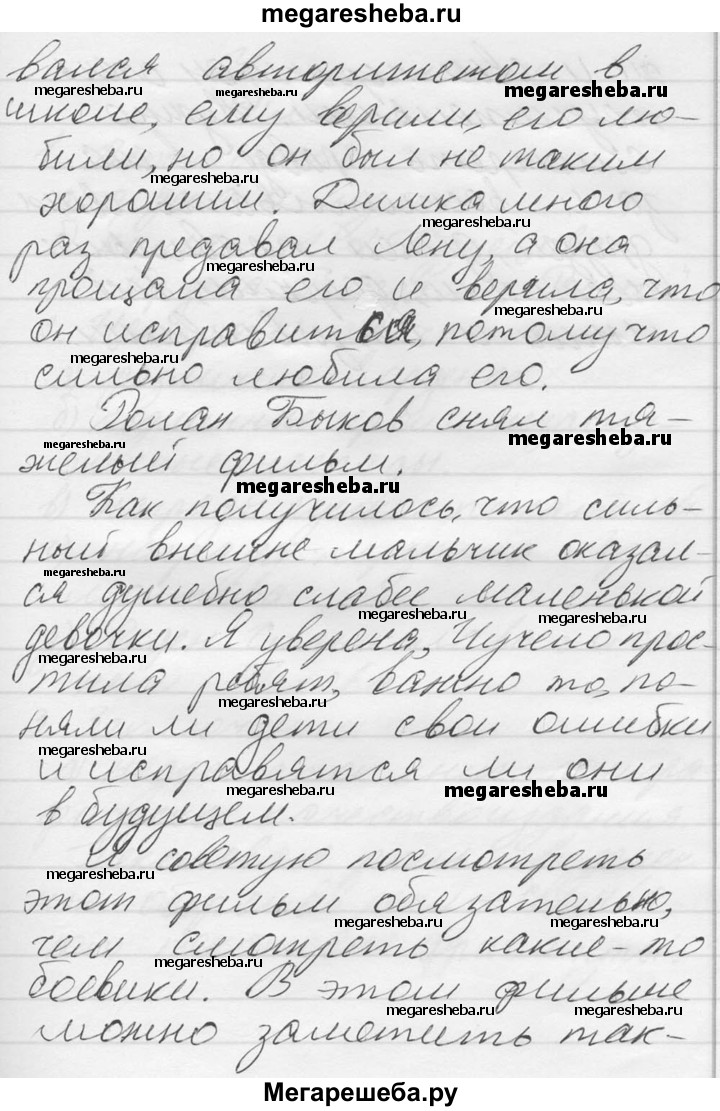 megaresheba.ru
вался авторитетом в
megaresheba.ru megaresheba.ru
школе, ему верили, его лю-
били, но он был не таким
megaresheba.ru megaresheba.ru
хорошим. Димка много
megaresheba.ru
раз предавал Лену, а она
megaresheba.ru
прощала его и верила, что
megaresheba.ru
он исправится, потому что
megaresheba.ru
сильно любила его.
Ролан Быков снял тя-
megaresheba.ru megaresheba.ru
желый фильм.
megaresheba.ru
Как получилось, что силь-
ный внешне мальчик оказал-
megaresheba.ru
ся душевно слабее маленькой
megaresheba.ru megaresheba.ru
девочки. Я уверена, Чучело прос-
megaresheba.ru
тила ребят, важно то, по-
megaresheba.ru
няли ли дети свои ошибки
megaresheba.ru
и исправятся ли они
megaresheba.ru
в будущем.
Я советую посмотреть
megaresheba.ru
этот фильм обязательно,
megaresheba.ru megaresheba.ru
чем смотреть какие-то
megaresheba.ru
боевики. В этом фильме
megaresheba.ru megaresheba.ru
можно заметить так-
Мегарешеба.ру